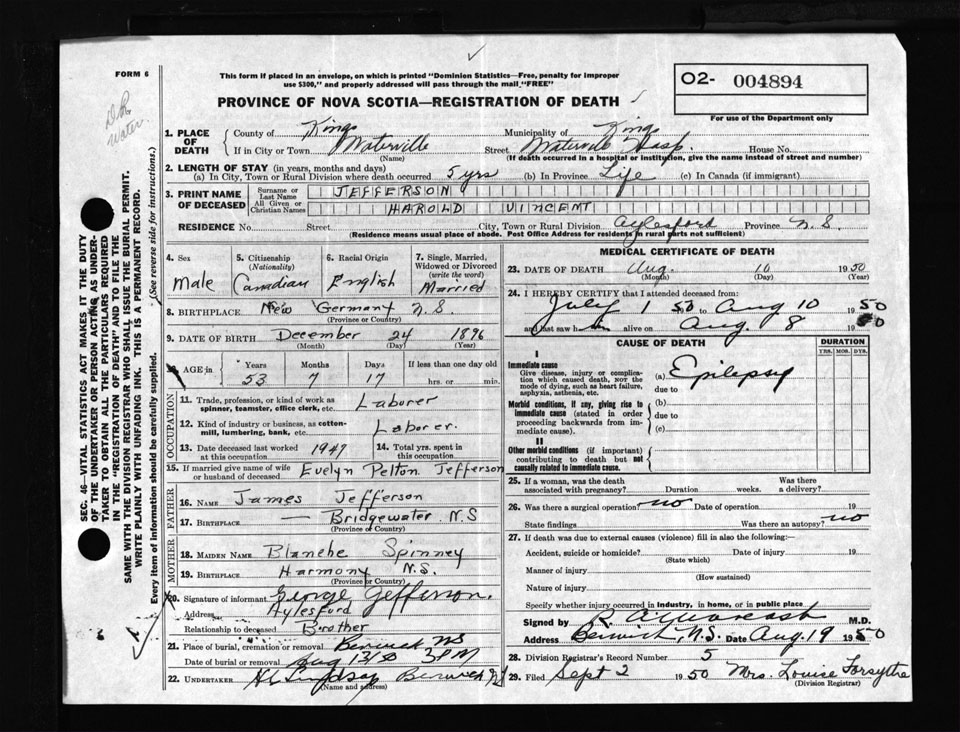 FORM 6
This form if placed in an envelope, on which is printed "Dominion Statistics—Free, penalty for improper
use $300," and properly addressed will pass through the mail "FREE"
PROVINCE OF NOVA SCOTIA—REGISTRATION OF DEATH
O2- 004894
For use of the Department only
DR
Water.
SEC. 46—VITAL STATISTICS ACT MAKES IT THE DUTY
OF THE UNDERTAKER OR PERSON ACTING AS UNDER-
TAKER TO OBTAIN ALL THE PARTICULARS REQUIRED
IN THE "REGISTRATION OF DEATH" AND TO FILE THE
SAME WITH THE DIVISION REGISTRAR WHO SHALL ISSUE THE BURIAL PERMIT.
WRITE PLAINLY WITH UNFADING INK. THIS IS A PERMANENT RECORD.
Every item of information should be carefully supplied. (See reverse side for instructions.)
1. PLACE OF DEATH
County of Kings Municipality of Kings
If in City or Town Waterville Street Waterville Hosp. House No.
(Name) (If death occurred in a hospital or institution, give the name instead of street and number)
2. LENGTH OF STAY (in years, months and days)
(a) In City, Town or Rural Division where death occurred 5 yrs (b) In Province Life (c) In Canada (if immigrant)
3. PRINT NAME OF DECEASED
Surname or Last Name JEFFERSON
All Given or Christian Names HAROLD VINCENT
RESIDENCE No. Street City, Town or Rural Division Aylesford Province N.S.
(Residence means usual place of abode. Post Office Address for residents in rural parts not sufficient)
4. Sex 5. Citizenship (Nationality) 6. Racial Origin 7. Single, Married, Widowed or Divorced (write the word)
Male Canadian English Married
8. BIRTHPLACE New Germany N.S.
(Province or Country)
9. DATE OF BIRTH December 24 1896
(Month) (Day) (Year)
10. AGE in Years Months Days If less than one day old
53 7 17 hrs. or min.
OCCUPATION
11. Trade, profession or kind of work as
spinner, teamster, office clerk, etc. Laborer
12. Kind of industry or business, as cotten-
mill, lumbering, bank, etc. Laborer.
13. Date deceased last worked at this occupation 1947 14. Total yrs. spent in this occupation
15. If married give name of wife or husband of deceased Evelyn Pelton Jefferson
FATHER
16. NAME James Jefferson
17. BIRTHPLACE — Bridgewater N.S
(Province or Country)
MOTHER
18. MAIDEN NAME Blanche Spinney
19. BIRTHPLACE Harmony N.S.
(Province or Country)
20. Signature of informant George Jefferson.
Address Aylesford
Relationship to deceased Brother
21. Place of burial, cremation or removal Berwick NS
Date of burial or removal Aug 13/50 3 PM
22. UNDERTAKER Lindsay Berwick NS
(Name and address)
MEDICAL CERTIFICATE OF DEATH
23. DATE OF DEATH Aug. 10 1950
(Month) (Day) (Year)
24. I HEREBY CERTIFY that I attended deceased from:
July 1 50 to Aug 10 1950
and last saw h alive on Aug. 8 1950
CAUSE OF DEATH DURATION
YRS. MOS. DYS.
I
Immediate cause
Give disease, injury or complica-
tion which caused death, not the
mode of dying, such as heart failure,
asphyxia, asthenia, etc.
(a) Epilepsy
due to
Morbid conditions, if any, giving rise to
immediate cause (stated in order
proceeding backwards from im-
mediate cause).
(b)
due to
(c)
II
Other morbid conditions (if important)
contributing to death but not
causally related to immediate cause.
25. If a woman, was the death
associated with pregnancy? Duration weeks. Was there a delivery?
26. Was there a surgical operation? no Date of operation 19
State findings Was there an autopsy? no
27. If death was due to external causes (violence) fill in also the following:
Accident, suicide or homicide? Date of injury 19
(State which)
Manner of injury
(How sustained)
Nature of injury
Specify whether injury occurred in industry, in home, or in public place
Signed by M.D.
Address Berwick, N.S. Date Aug. 19 1950
28. Division Registrar's Record Number 5
29. Filed Sept 2 1950 Mrs. Louise Forsythe
(Division Registrar)